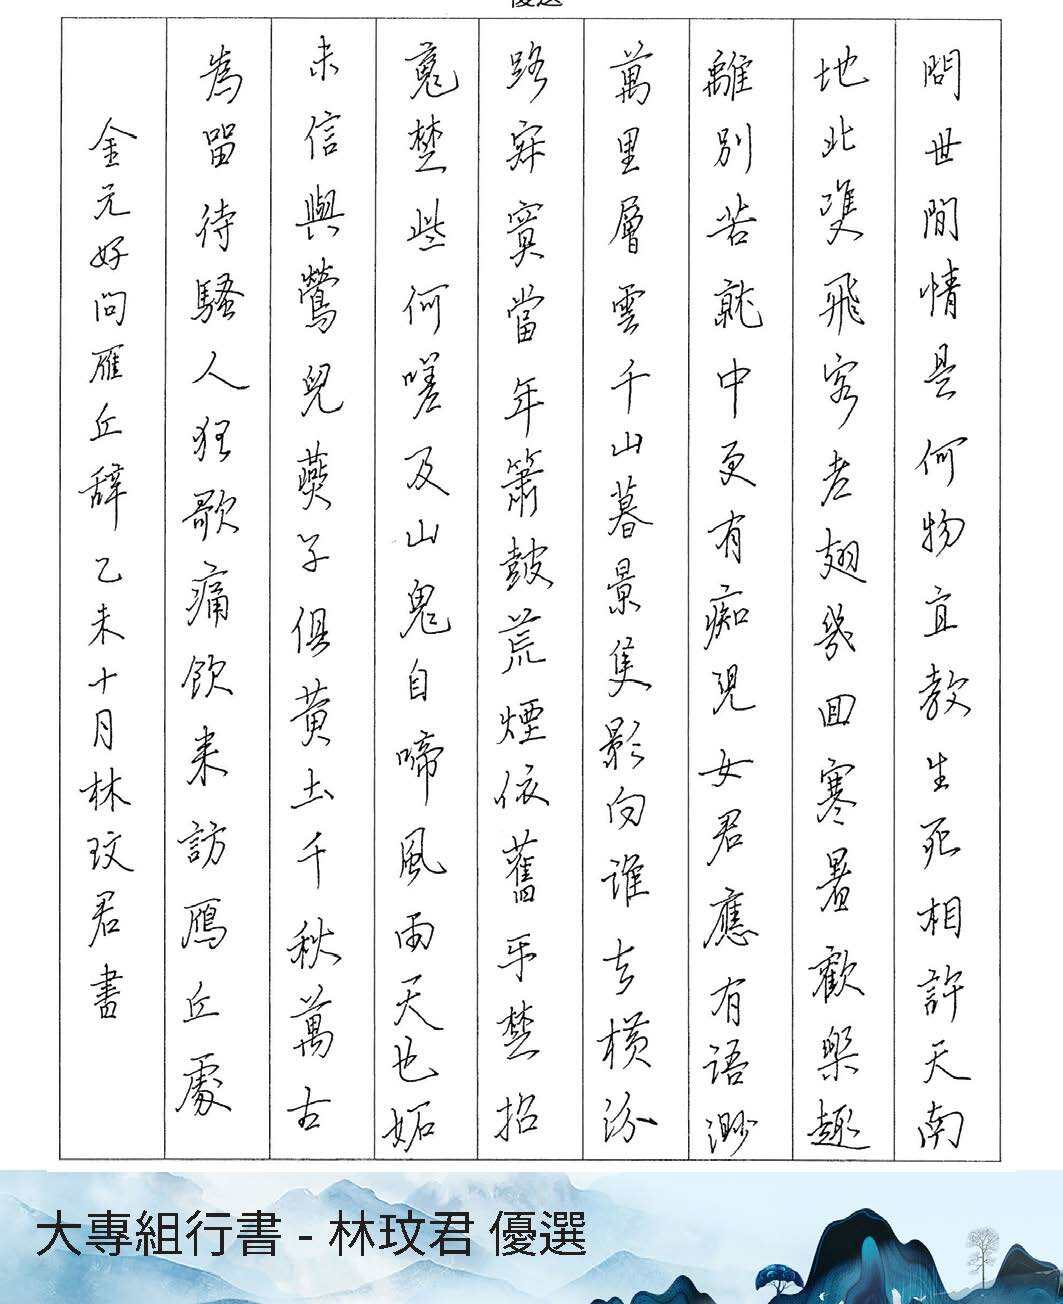 問世間情是何物直教生死相許天南
地北雙飛客老翅幾回寒暑歡樂趣
離別苦就中更有痴兒女君應有語渺
萬里層雲千山暮景隻影向誰去橫汾
路寂寞當年簫鼓荒煙依舊平楚招
魂楚些何嗟及山鬼自啼風雨天也妬
未信與鶯兒燕子俱黃土千秋萬古
為留待騷人狂歌痛飲來訪鴈丘處
金元好問雁丘辭乙未十月林玟君書
大專組行書 - 林玟君 優選